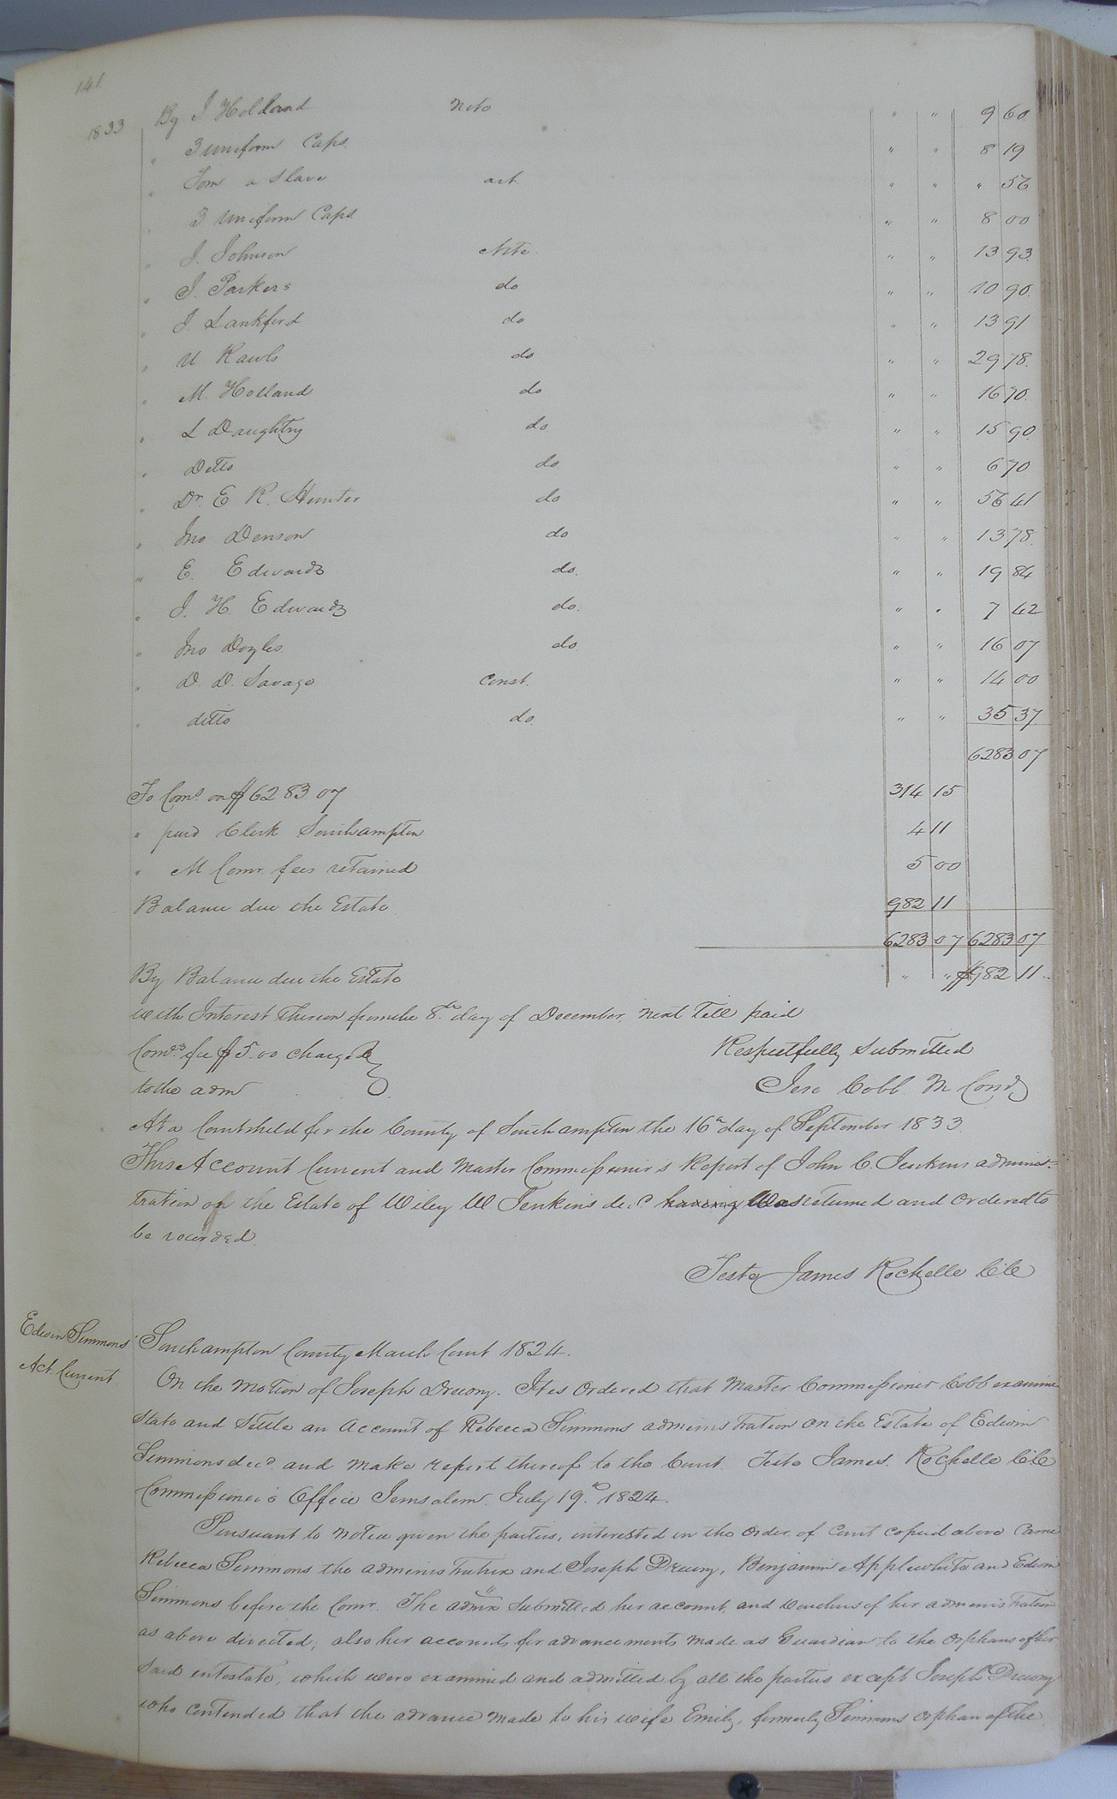 141
1833 By J Holland Note " " 9 60
" 3 uniform Caps " " 8 19
" Tom a Slave act " " " 56
" 3 Uniform Caps " " 8 00
" J. Johnson Note " " 13 93
" J. Parker do " " 10 90
" J Lankford do " " 13 91
" U Rawls do " " 29 78
" M. Holland do " " 16 70
" L Daughtry do " " 15 90
" Ditto do " " 6 70
" Dr. E R. Hunter do " " 56 41
" Jno Denson do " " 13 78
" E. Edwards do. " " 19 84
" J. H. Edwards do. " " 7 42
" Jno Doyles do " " 16 07
" D. D. Savage Const. " " 14 00
" ditto do. " " 35 37
6283 07
To Coms on $6283 07 314 15
" paid Clerk Southampton 4 11
" M Comr. fees retained 5 00
Balance due the Estate 982 11
6283 07 6283 07
By Balance due the Estate " " $982 11
with Interest thereon from the 8th day of December next till paid
Coms fee $5.00 charged Respectfully Submitted
to the adm Jere Cobb M Comr
At a Court held for the County of Southampton the 16th day of September 1833
This Account Current and Master Commissioner's Report of John C. Jenkins adminis=
tration on the Estate of Wiley W Jenkins decd having Was returned and Ordered to
be recorded.
Teste James Rochelle Clk
Edwin Simmons' Southampton County March Court 1824.
Act. Current On the Motion of Joseph Drewry. It is Ordered that Master Commissioner Cobb examine
State and Settle an Account of Rebecca Simmons administration on the Estate of Edwin
Simmons decd and make report thereof to the Court. Teste James Rochelle Clk
Commissioner's Office Jerusalem. July 19th 1824.
Pursuant to notice given the parties, interested in the Order of Court copied above Came
Rebecca Simmons the administratrix and Joseph Drewry, Benjamin Applewhite and Edwin
Simmons before the Comr. The admx Submitted her account, and Vouchers of her administration
as above directed, also her accounts for advancements made as Guardian to the Orphans of her
Said intestate, which were examined and admitted by all the parties except Joseph Drewry
who contended that the advance made to his wife Emily, formerly Simmons orphan of the